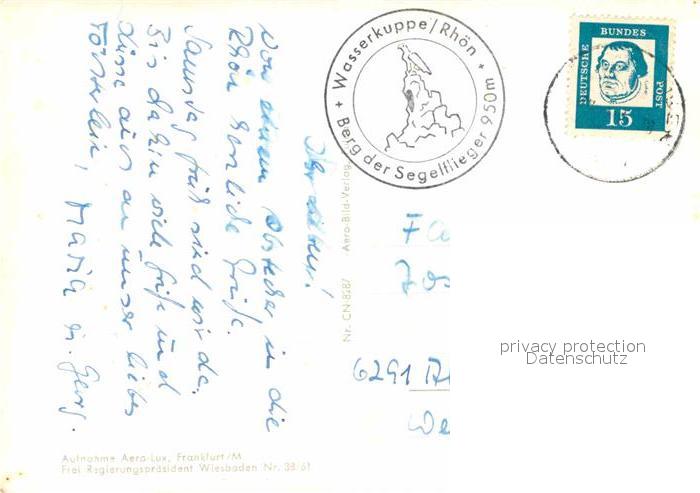 Ihr Lieben!
Von einem Abstecher in die
Rhön herzliche Grüße.
Samstag früh sind wir da.
Bis dahin viele Grüße und
Küsse auch an unser liebes
Maria u. Georg.
+ Wasserkuppe/Rhön +
Berg der Segelflieger 950m
DEUTSCHE
BUNDES
POST
15
Nr. CN-8287 Aero-Bild-Verlag
Fa
Jos
6291
We
privacy protection
Datenschutz
Aufnahme Aero-Lux, Frankfurt/M
Frei Regierungspräsident Wiesbaden Nr. 38/61